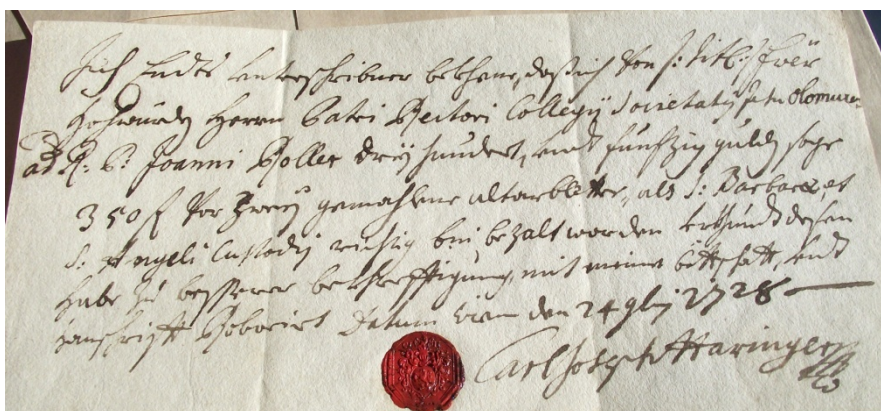 Ich Endts Unterschribner bekhene, daß ich von s: titl: Ihrer
Hochwürdn Herrn Patri Rectori Collegÿ Societatis Jesu Olomucen
ad R: P: Joanni Roller dreÿ hundert, undt fünfzig guldn sage
350 f vor zweÿ gemahlene altarbletter, als S: Barbarae, et
S: Angeli Custodis richtig bin bezalt worden Uhrkundt dessen
habe zu besserer bekrefftigung, mit meine Pittschafft, undt
handschrifft Roborirt Datum Wien den 24 9bris 1728
Carl Joseph Haringer